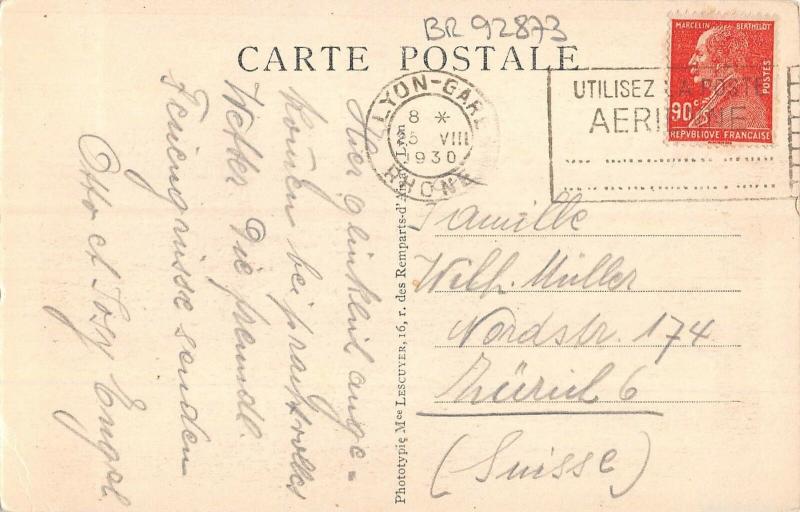 BR 92873
CARTE POSTALE
MARCELIN BERTHELOT
POSTES
90c
REPVBLIQUE FRANÇAISE
UTILISEZ LA POSTE
AERIENNE
LYON-GARE
8 *
5 VIII
1930
RHONE
Hier glücklich ange=
kommen bei prachtvollem
Wetter Die freundl.
Feriengrüsse senden
Otto et Engel
Phototypie Mce LESCUYER, 16, r. des Remparts-d'Ainay, Lyon
Familie
Wilh. Müller
Nordstr. 174
Zürich 6
(Suisse)